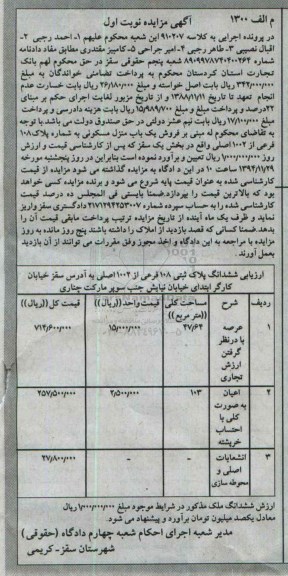 م الف ۱۳۰۰
آگهی مزایده نوبت اول
در پرونده اجرایی به کلاسه ۹۱۰۲۰۷ این شعبه محکوم علیهم ۱- احمد رجبی ۲-
اقبال نصیبی ۳- طاهر رجبی ۴- امیر جراحی ۵- کامبیز مقتدری مطابق مفاد دادنامه
شماره ۸۹۰۹۹۷۸۷۴۰۴۰۰۲۶۴ شعبه پنجم حقوقی سقز در حق محکوم لهم بانک
تجارت استان کردستان محکوم به پرداخت تضامنی خواندگان به مبلغ
۳۴۲/۰۰۰/۰۰۰ ریال بابت اصل خواسته و مبلغ ۲۶/۱۸۰/۰۰۰ ریال بابت خسارت عدم
انجام تعهد تا تاریخ ۱۳۸۸/۱۱/۱۱ و از تاریخ مزبور لغایت اجرای حکم بر مبنای
۲۲درصد و پرداخت مبلغ و مبلغ ۱۵/۹۸۹/۷۰۰ ریال بابت هزینه دادرسی و پرداخت
مبلغ ۱۷/۱۰۰/۰۰۰ ریال بابت نیم عشر دولتی در حق صندوق دولت می باشد با توجه
به تقاضای محکوم له مبنی بر فروش یک باب منزل مسکونی به شماره پلاک ۱۰۸
فرعی از ۱۰۰۲ اصلی واقع در بخش یک سقز که پس از کارشناسی قیمت و ارزش
۱/۰۰۰/۰۰۰/۰۰۰ ریال تعیین و برآورد نموده است بنابراین در روز پنجشنبه مورخه
۱۳۹۲/۱۱/۲۹ ساعت ۱۰ در این دادگاه به مزایده گذاشته می شود مزایده از قیمت
کارشناسی شده به عنوان قیمت پایه شروع می شود و برنده مزایده کسی خواهد
بود که بالاترین قیمت را بپردازد ضمنا بایستی فی المجلس ده درصد قیمت
کارشناسی شده را به حساب سپرده شماره ۲۱۷۱۲۹۲۲۵۳۰۰۷ دادگستری سقز واریز
نماید و ظرف یک ماه آینده از تاریخ مزایده ترتیب پرداخت مابقی قیمت آن را
بدهد ضمنا کسانی که قصد بازدید از املاک را داشته باشند پنج روز مانده به روز
مزایده با مراجعه به این دادگاه و اخذ مجوز وفق مقررات می توانند از آن بازدید
بعمل آورند.
ارزیابی ششدانگ پلاک ثبتی ۱۰۸ فرعی از ۱۰۰۲ اصلی به آدرس سقز خیابان
کارگر ابتدای خیابان نیایش جنب سوپر مارکت چناری
ردیف شرح مساحت کلی ((متر مربع)) قیمت واحد ((ریال)) قیمت کل ((ریال))
۱ عرصه با درنظر گرفتن ارزش تجاری ۴۷/۶۴ ۱۵/۰۰۰/۰۰۰ ۷۱۴/۶۰۰/۰۰۰
۲ اعیان به صورت کلی با احتساب خرپشته ۱۰۳ ۲/۵۰۰/۰۰۰ ۲۵۷/۵۰۰/۰۰۰
۳ انشعابات اصلی و محوطه سازی - - ۲۷/۸۰۰/۰۰۰
ارزش ششدانگ ملک مذکور در شرایط موجود مبلغ ۱/۰۰۰/۰۰۰/۰۰۰ ریال
معادل یکصد میلیون تومان برآورد و پیشنهاد می شود.
مدیر شعبه اجرای احکام شعبه چهارم دادگاه (حقوقی)
شهرستان سقز- کریمی